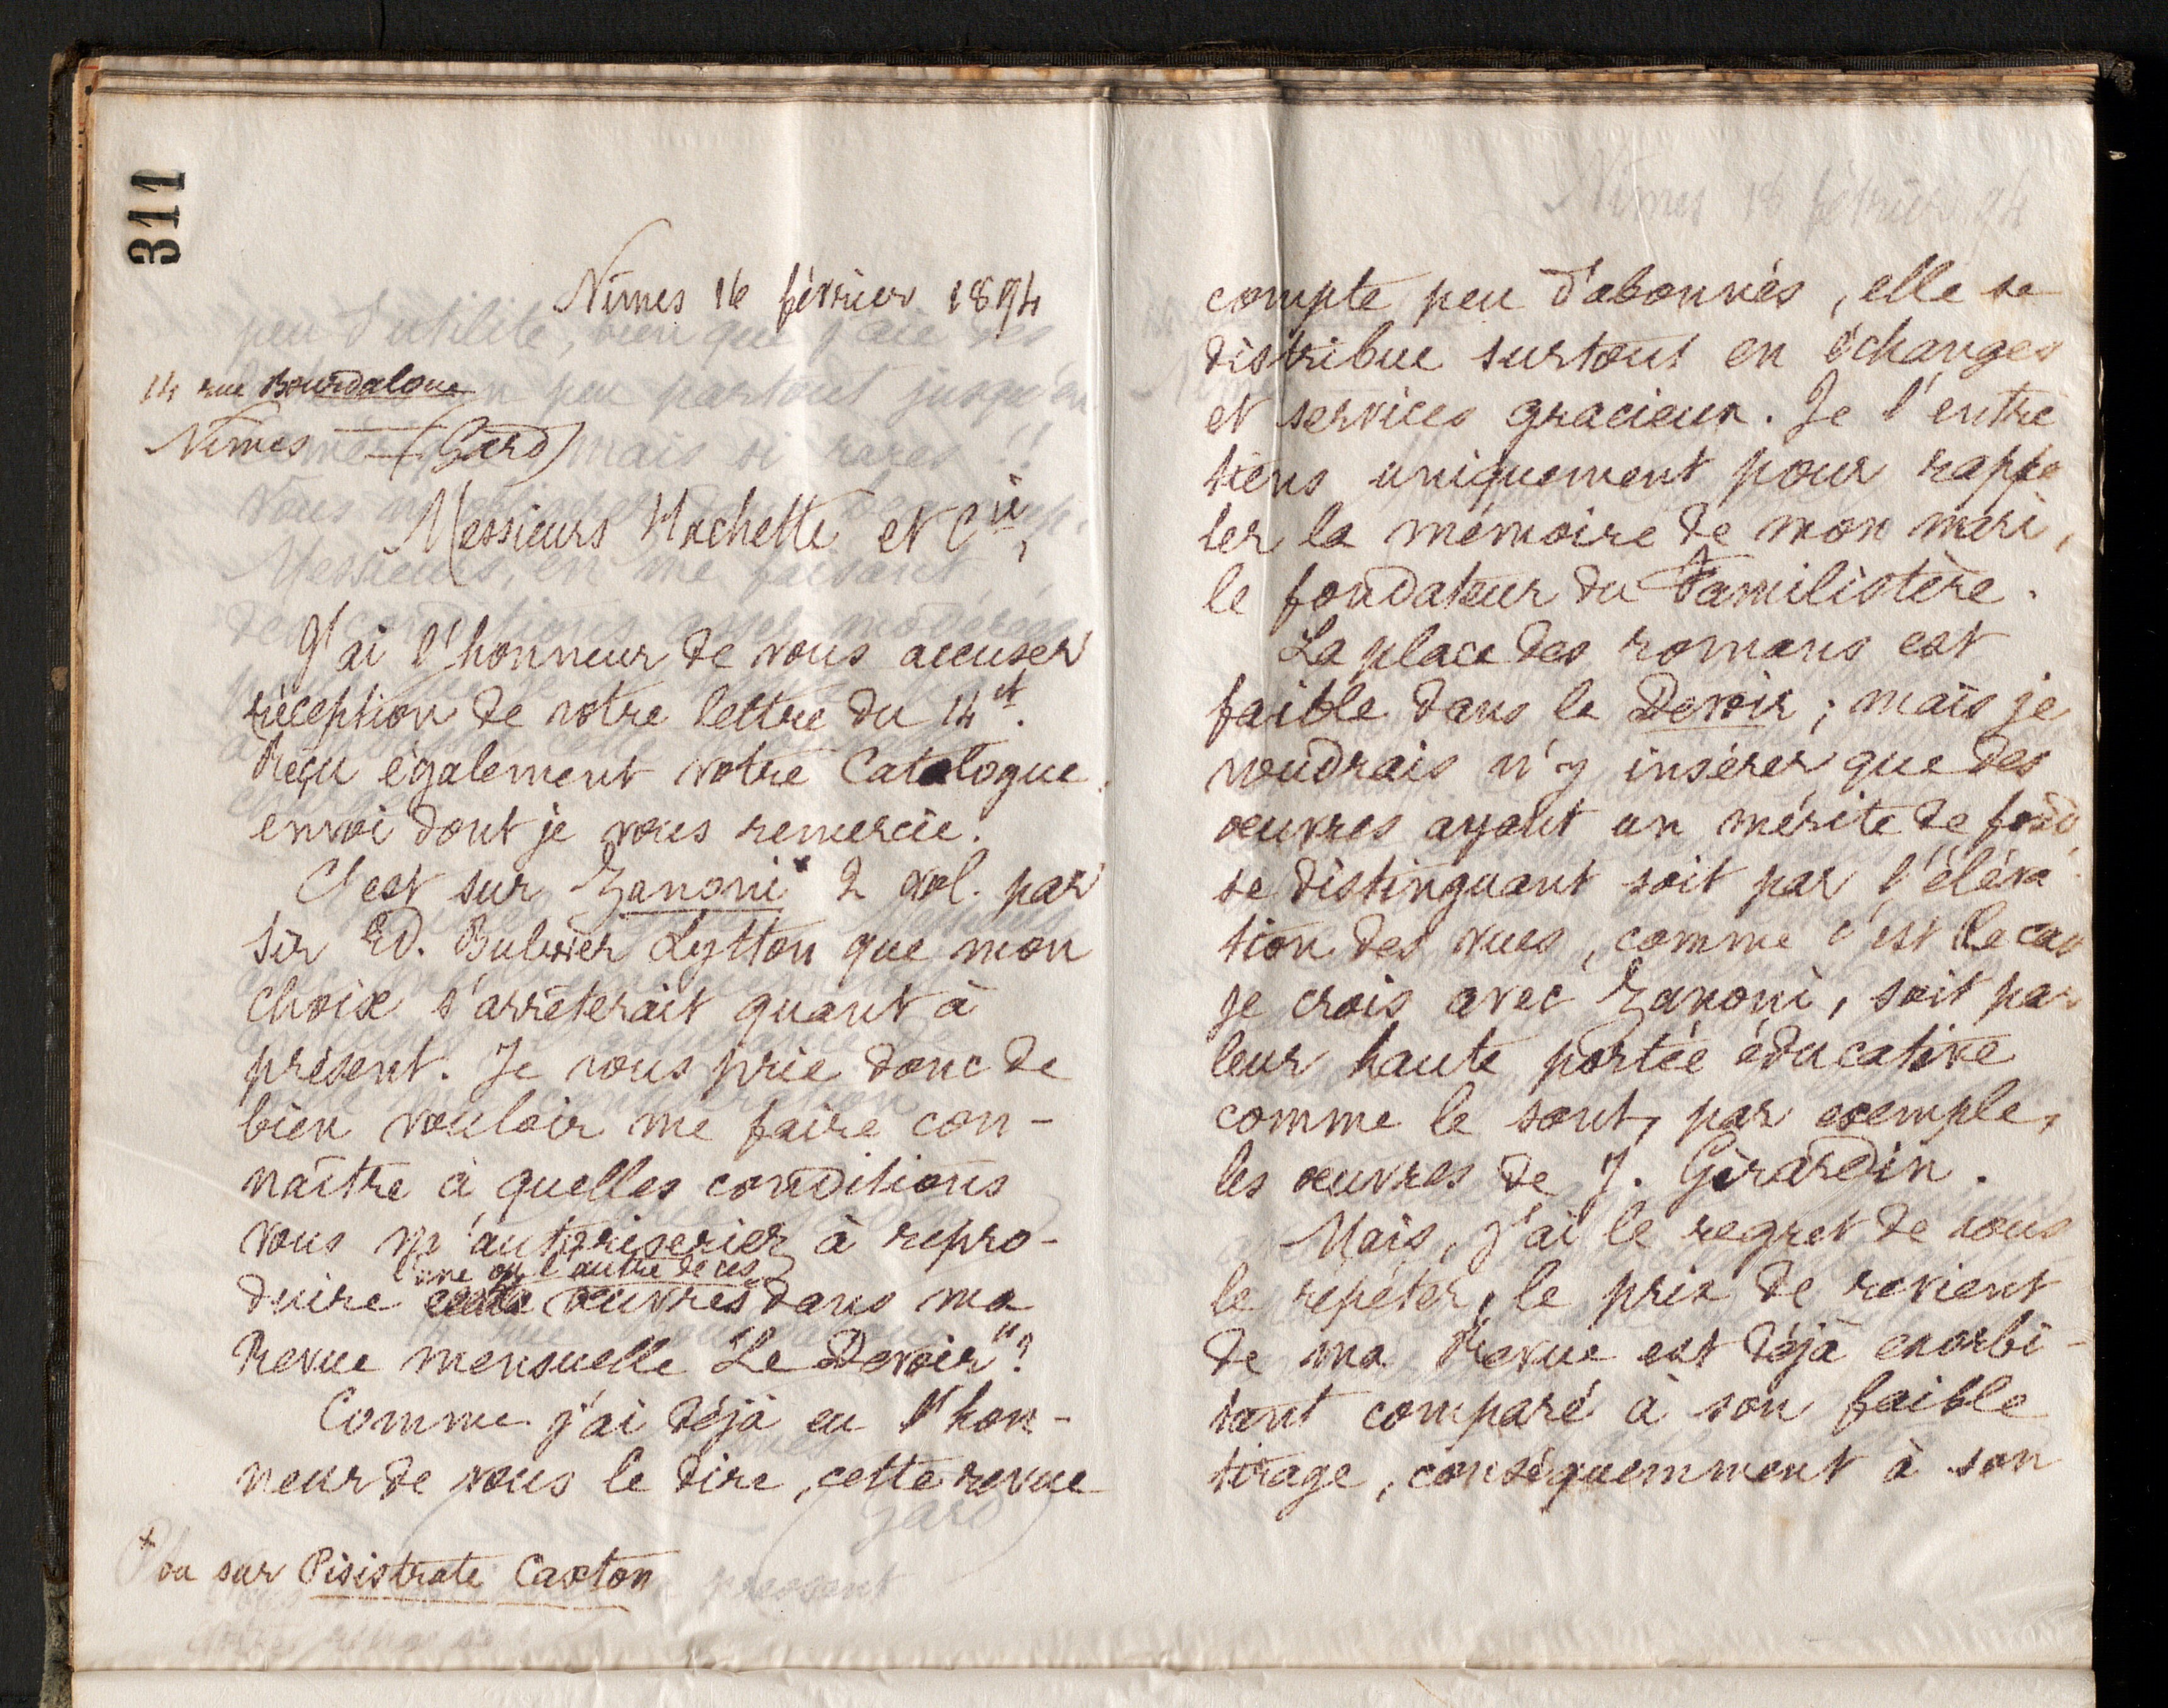 311
Nîmes 16 février 1894
14 rue Bourdaloue
Nîmes (Gard)
Messieurs Hachette et Cie,
J'ai l'honneur de vous accuser
réception de votre lettre du 14 ct.
Reçu également votre Catalogue
envoi dont je vous remercie.
C'est sur Zanoni + 2 vol. par
Sir Ed. Bulwer Lytton que mon
choix s'arrêterait quant à
présent. Je vous prie donc de
bien vouloir me faire con-
naître à quelles conditions
vous m'autoriseriez à repro-
l'une ou l'autre de ces
duire cette œuvres dans ma
Revue mensuelle "Le Devoir"?
Comme j'ai déjà eu l'hon-
neur de vous le dire, cette revue
+ ou sur Pisistrate Caxton
compte peu d'abonnés, elle se
distribue surtout en échanges
et services gracieux. Je l'entre
tiens uniquement pour rappe
ler la mémoire de mon mari,
le fondateur du Familistère.
La place des romans est
faible dans le Devoir; mais je
voudrais n'y insérer que des
œuvres ayant un mérite de fond,
se distinguant soit par l'éléva-
tion des vues, comme c'est le cas
je crois avec Zanoni, soit par
leur haute portée éducative
comme le sont, par exemple,
les œuvres de J. Girardin.
Mais, j'ai le regret de vous
le répéter, le prix de revient
de ma Revue est déjà exorbi-
tant comparé à son faible
tirage, conséquemment à son